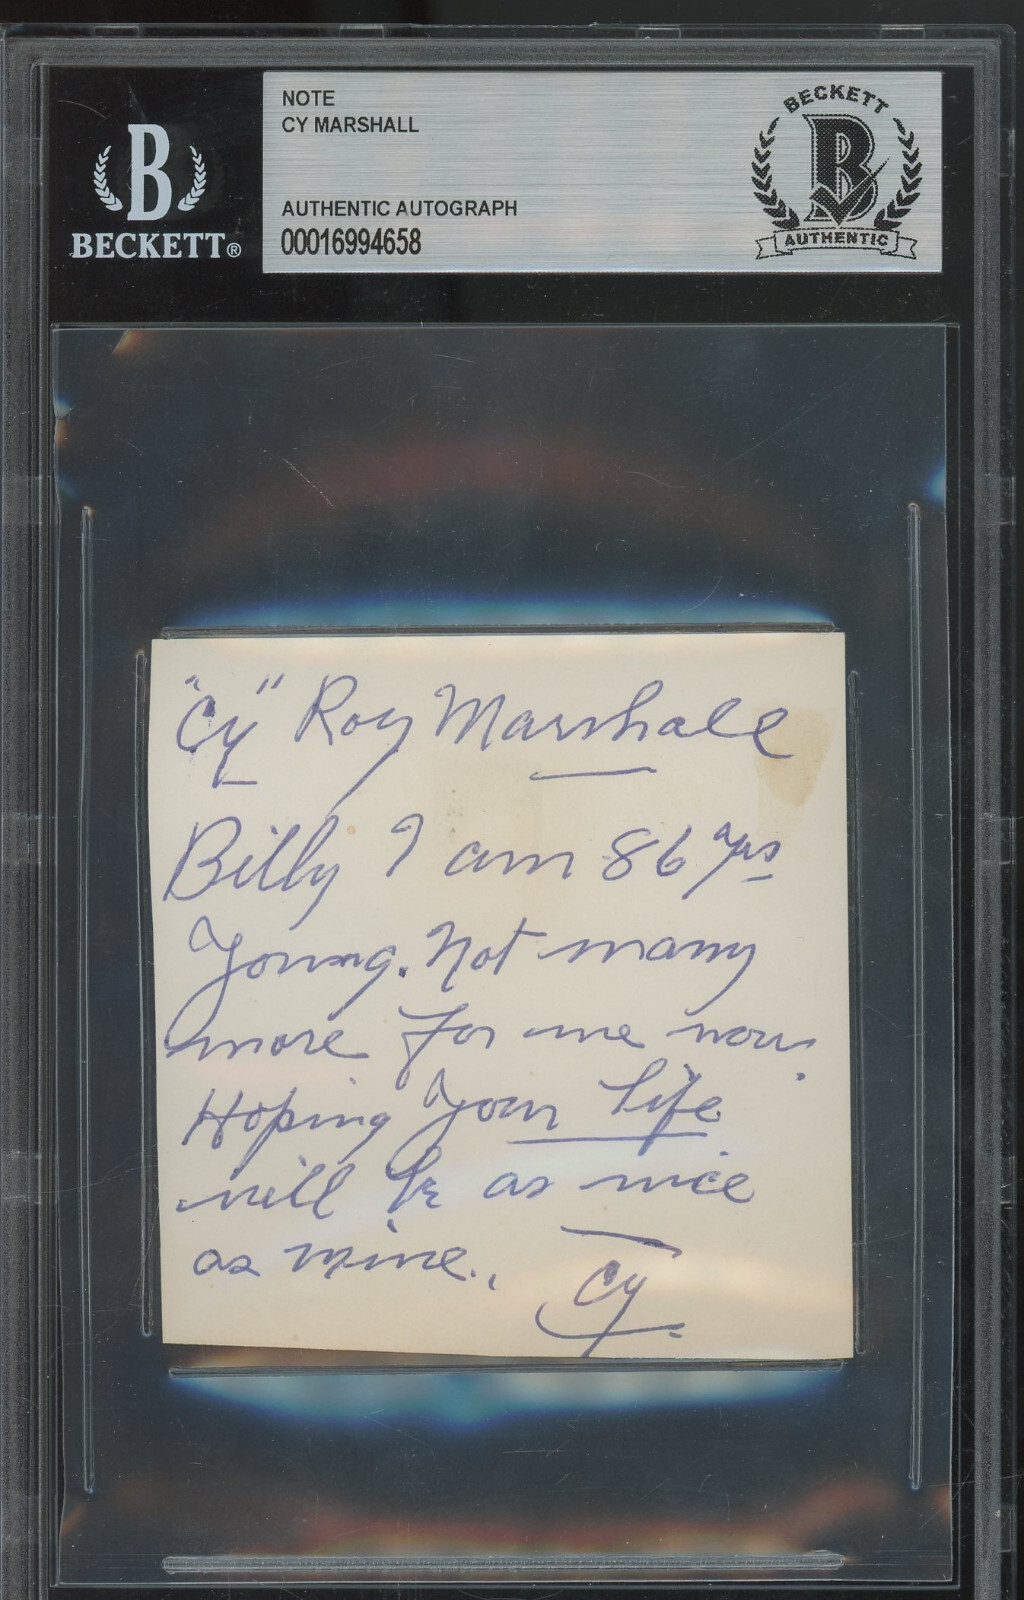 NOTE
CY MARSHALL
AUTHENTIC AUTOGRAPH
00016994658
B
BECKETT®
BECKETT
B
AUTHENTIC
"Cy" Roy Marshall
Billy I am 86 yrs
Young. Not many
more for me now.
Hoping your life
will be as nice
as mine.,
Cy